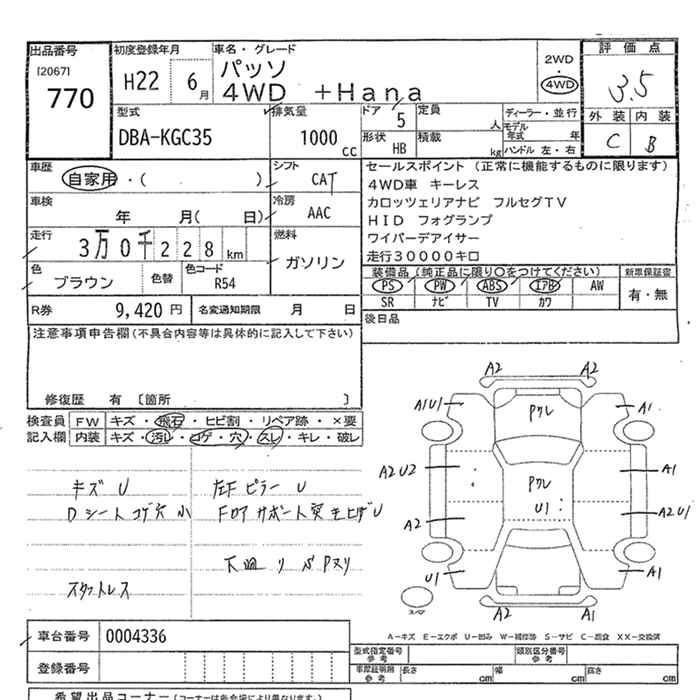 出品番号
[2067]
770
初度登録年月
H22 6月
車名・グレード
パッソ
4WD +Hana
2WD
4WD
評価点
3.5
外装 内装
C B
型式
DBA-KGC35
排気量
1000 cc
ドア 5
定員 人
形状 HB
積載 kg
ディーラー・並行
モデル年式 年
ハンドル 左・右
車歴
自家用・( )
シフト
CAT
車検
年 月( 日)
冷房
AAC
走行
3万0千228km
燃料
ガソリン
色
ブラウン
色替
色コード
R54
R券 9,420円
名変通知期限 月 日
セールスポイント (正常に機能するものに限ります)
4WD車 キーレス
カロッツェリアナビ フルセグTV
HID フォグランプ
ワイパーデアイサー
走行30000キロ
装備品(純正品に限り〇をつけてください)
PS PW ABS エアB AW
SR ナビ TV カワ
新車保証書
有・無
後日品
注意事項申告欄(不具合内容等は具体的に記入して下さい)
修復歴 有 〔箇所 〕
検査員記入欄
FW キズ・飛石・ヒビ割・リペア跡・×要
内装 キズ・汚レ・コゲ・穴・スレ・キレ・破レ
キズ U
Dシートコゲ穴 小
スタットレス
左F ピラー U
下皿 リ
A2 A2
A1U1 A1
Pクレ
A2U2 A1
Pクレ
U1
A2 A2U1
U1 A1
A2 A1
スペア
A-キズ E-エクボ U-凹み W-補修跡 S-サビ C-腐食 XX-交換済
車台番号 0004336
登録番号
型式指定番号 参考
類別区分番号 参考
車庫証明 参考
長さ cm
幅 cm
高さ cm
希望出品コーナー(コーナーは各会場により異なります。)